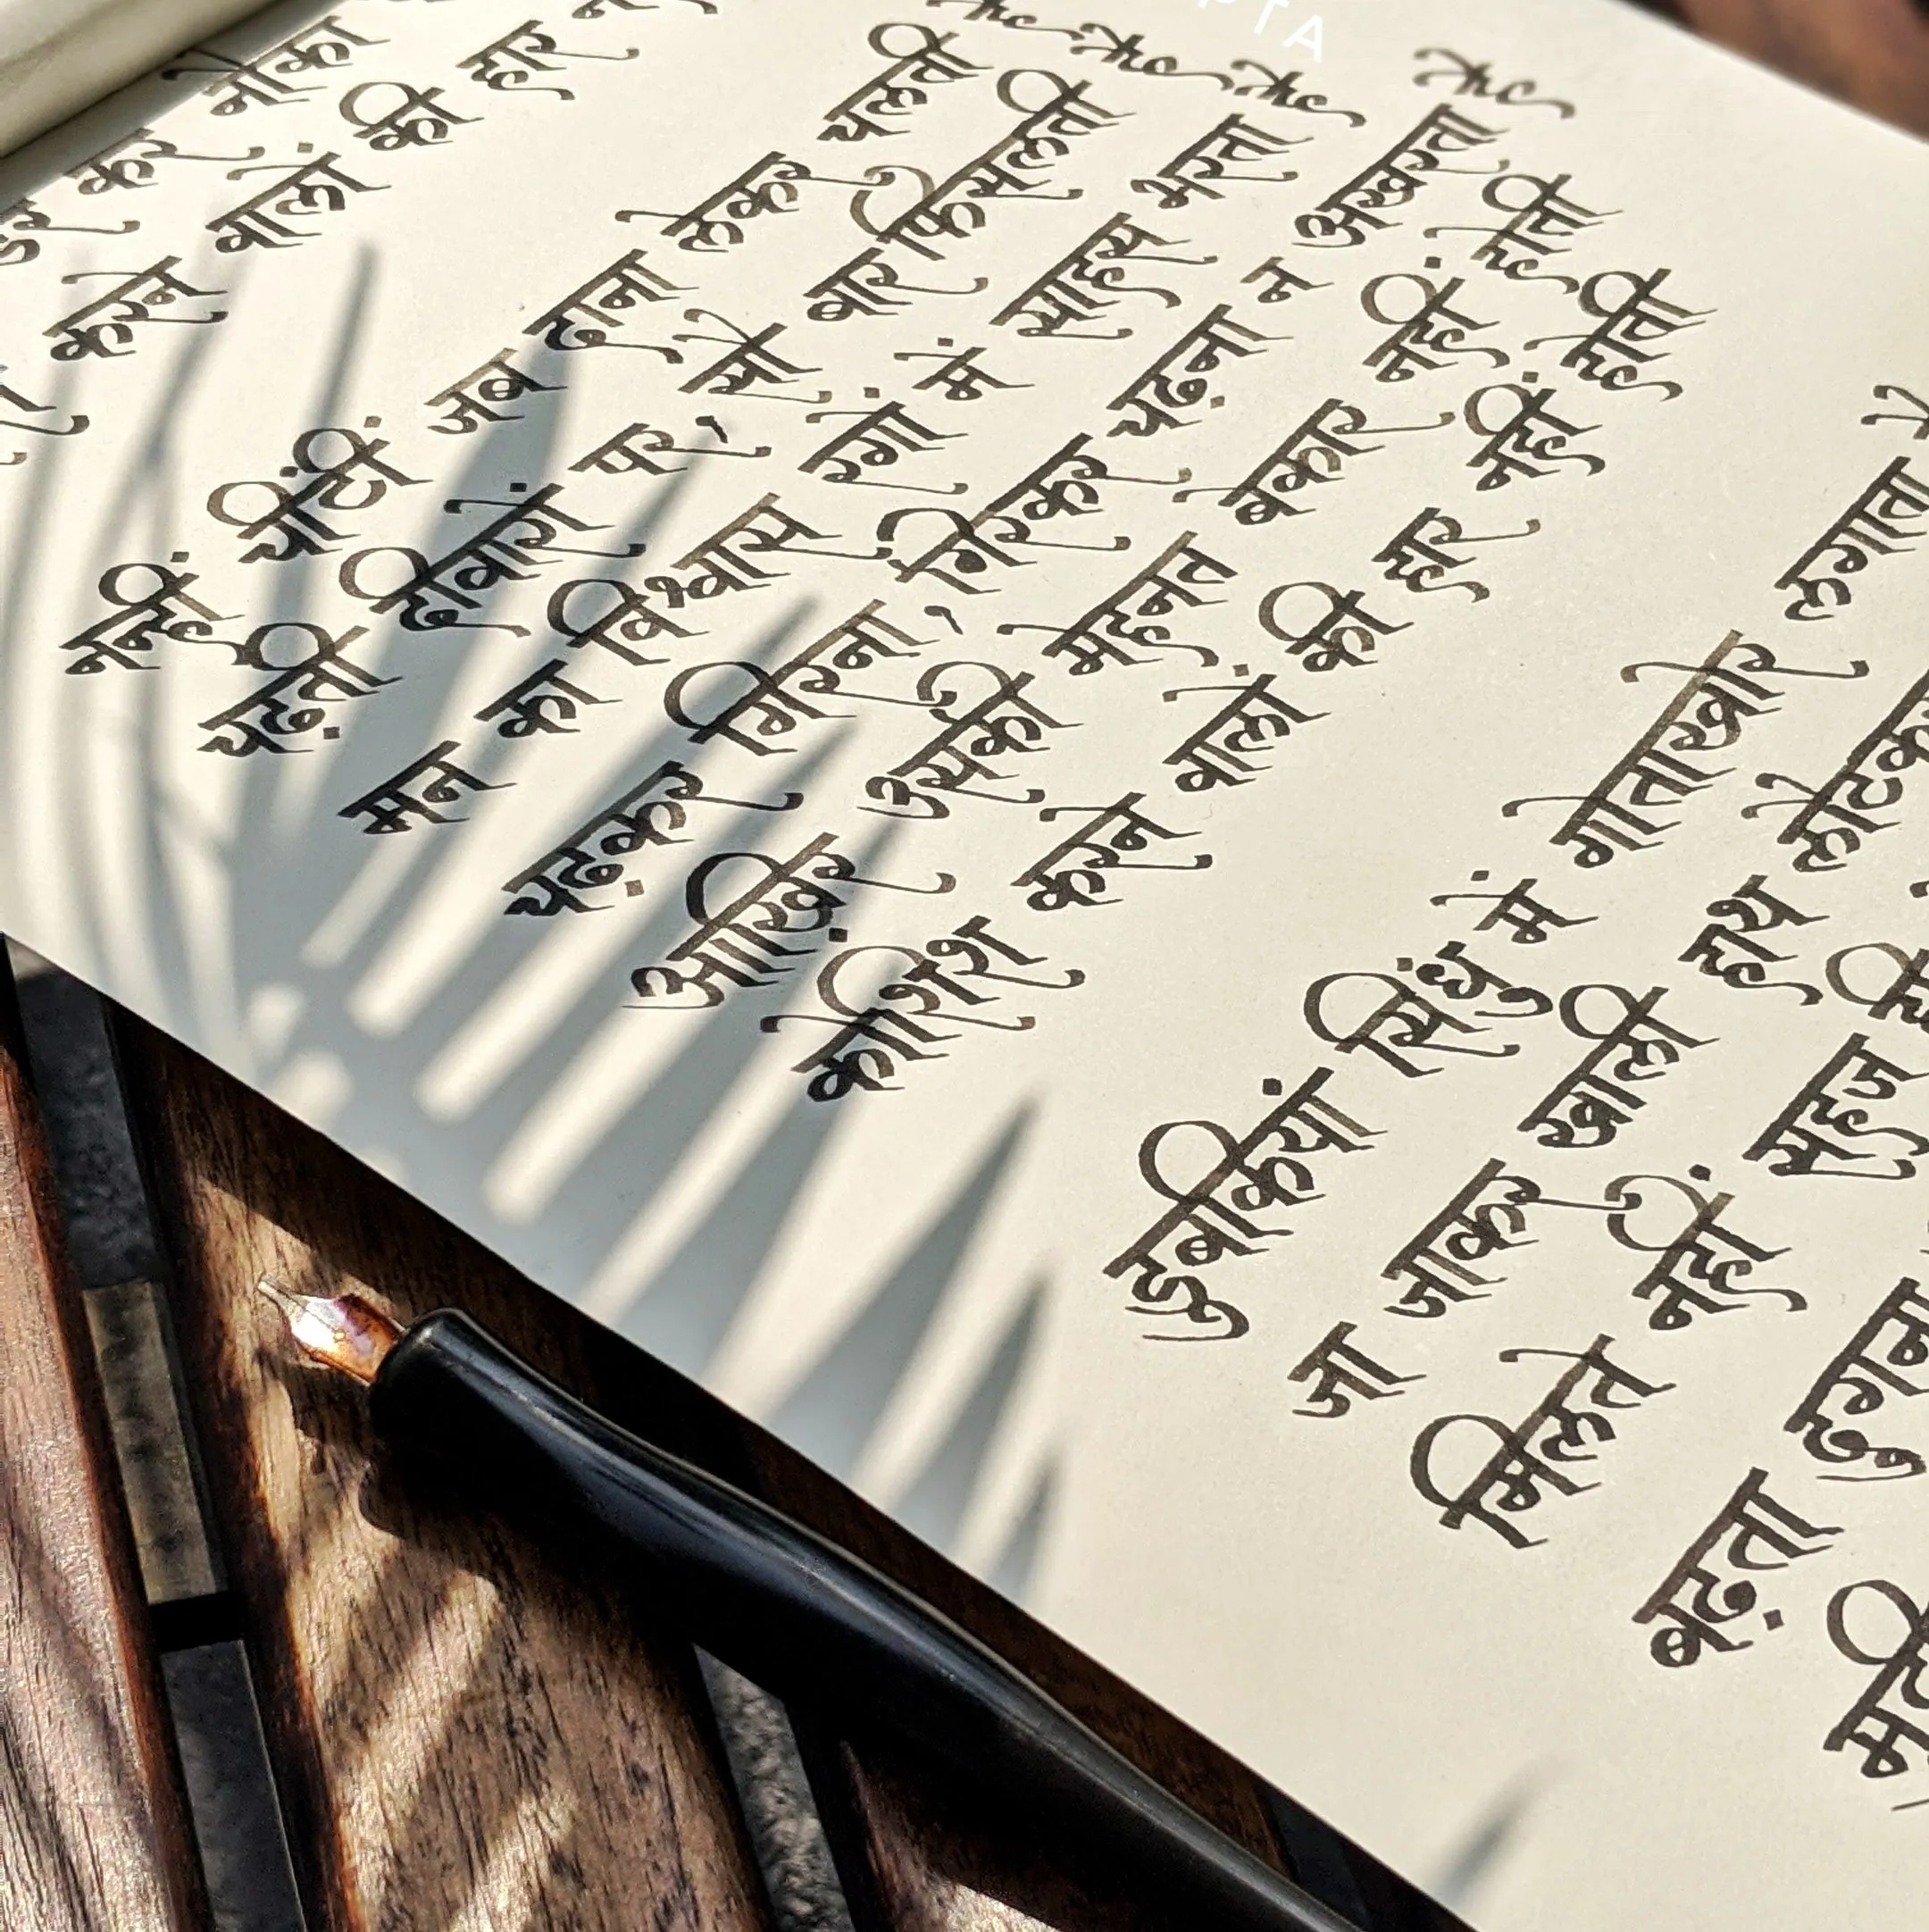 डर कर नौका
करने वालों की हार
नन्हीं चींटीं जब दाना लेकर चलती है
चढ़ती दीवारों पर, सौ बार फिसलती है
मन का विश्वास रगों में साहस भरता है
चढ़कर गिरना, गिरकर चढ़ना न अखरता है
आख़िर उसकी मेहनत बेकार नहीं होती
कोशिश करने वालों की हार नहीं होती
डुबकियां सिंधु में गोताखोर लगाता
जा जाकर खाली हाथ
मिलते नहीं सहज
बढ़ता